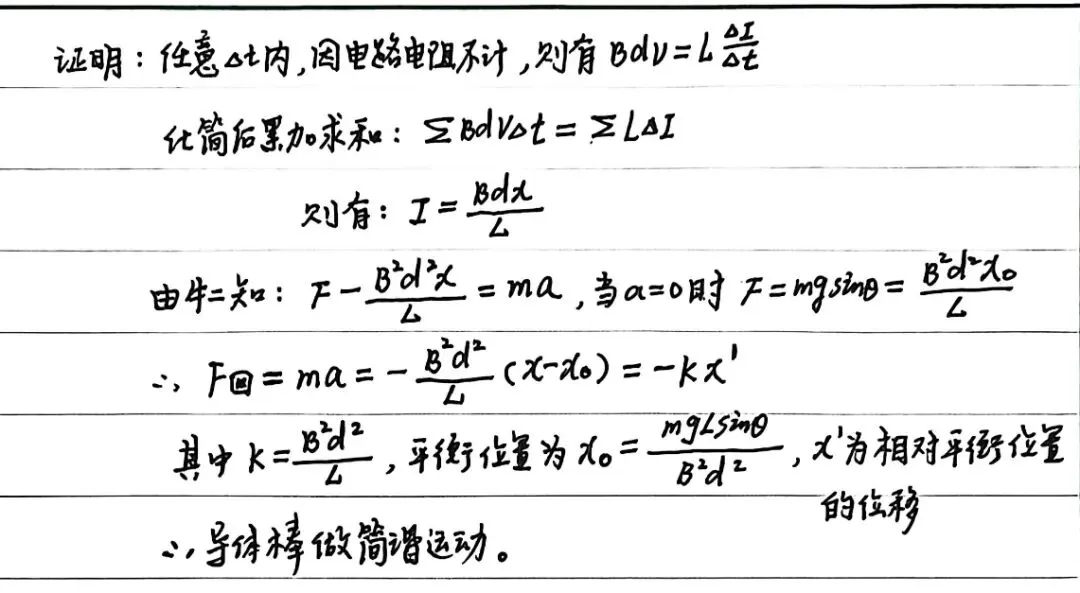 证明：任意Δt内，因电路电阻不计，则有 BdV=L ΔI/Δt
化简后累加求和：ΣBdVΔt=ΣLΔI
则有：I=Bdx/L
由牛二知：F-B²d²x/L=ma，当a=0时 F=mgsinθ=B²d²x₀/L
∴ F回=ma=-B²d²/L(x-x₀)=-kx'
其中k=B²d²/L，平衡位置为x₀=mgLsinθ/B²d²，x'为相对平衡位置
的位移
∴导体棒做简谐运动。